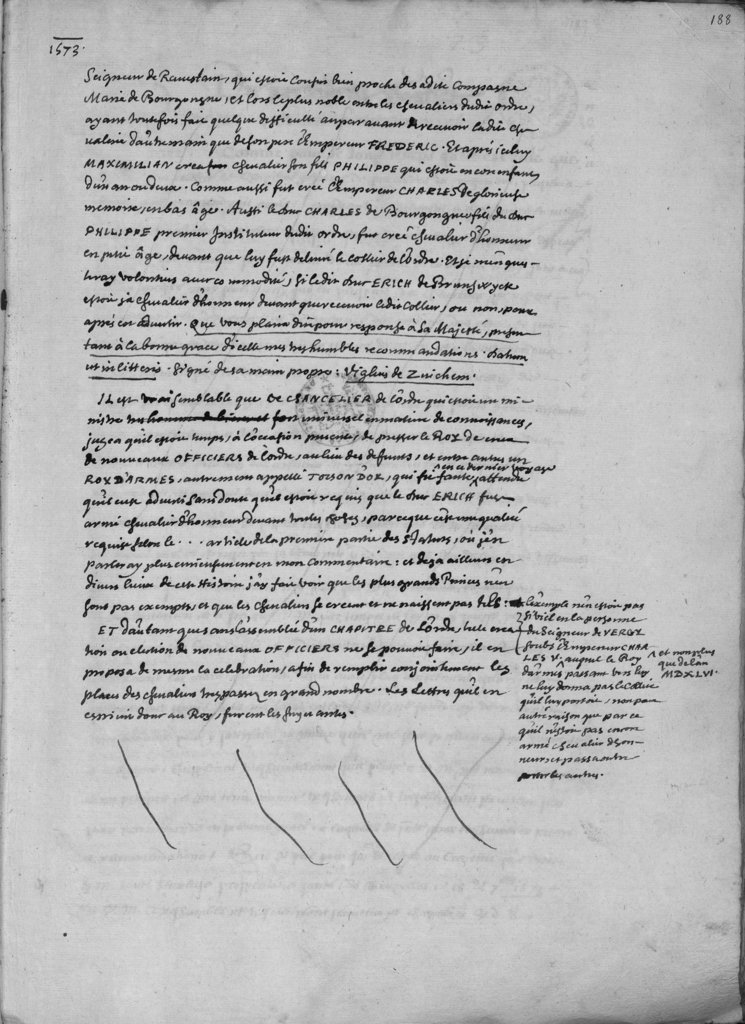 188
1573.
Seigneur de Ravestain, qui estoit Cousin bien proche de sadite Compagne
Marie de Bourgongne, et lors le plus noble entre les chevaliers dudit ordre,
ayant toutefois fait quelque difficulté auparavant de recevoir ladite che
valerie d'autre main que de son pere l'Empereur FREDERIC. Et après iceluy
MAXIMILIAN crea chevalier son fils PHILIPPE qui estoit encore enfant
d'un an ou deux. Comme aussi fut creé l'Empereur CHARLES de glorieuse
memoire, en bas âge. Aussi le duc CHARLES de Bourgongne fils du duc
PHILIPPE premier Instituteur dudit ordre, fut creé chevalier d'honneur
en petit âge, devant que luy fust delivré le collier de l'ordre. Et je m'enques-
teray volontiers avec commodité, si ledit duc ERICH de Brunswyck
estoit ja chevalier d'honneur devant que recevoir ledit Collier, ou non, pour
après en advertir. Que vous plaira dire pour response à Sa Majesté, presen
tant à la bonne grace d'icelle mes tres humbles recommandations. Datum
ut in litteris. Signé de sa main propre: Viglius de Zuichem.
IL est vraisemblable que ce CHANCELIER de l'ordre qui estoit un mi-
nistre tres universel en matiere de connoissances,
jugea qu'il estoit temps, à l'occasion presente, de presser le ROY de creer
de nouveaux OFFICIERS de l'ordre, au lieu des deffunts, et entre autres un
ROY D'ARMES, autrement appellé TOISON D'OR, qui fit faute ^ attendu
^ en ce dernier voyage
qu'il eust adverti sans doute qu'il estoit requis que le duc ERICH fust
armé chevalier d'honneur devant toutes choses, parce que c'est une qualité
requise selon le . . . article de la premiere partie des Statuts, où j'en
parleray plus curieusement en mon Commentaire: et deja ailleurs en
divers lieux de ceste Histoire j'ay fait voir que les plus grands Princes n'en
sont pas exempts et que les chevaliers se creent et ne naissent pas tels:
ET d'autant que sans l'assemblée d'un CHAPITRE de l'ordre, tele crea
tion ou election de nouveaux OFFICIERS ne se pouvoit faire, il en
proposa de mesme la celebration, afin de remplir conjointement les
places des chevaliers trespassez en grand nombre. Les Lettres qu'il en
escrivit donc au Roy, furent les suyvantes.
l'exemple n'en estoit pas
si vieil en la personne
du Seigneur de VERGY
soubs l'Empereur CHAR
LES V ^ auquel le Roy
^ et non plus
que de l'an
MDXLVI.
d'armes passant vers luy
ne luy donna pas le Collier
qu'il luy portoit, non pour
autre raison que par ce
qu'il n'estoit pas encore
armé chevalier d'hon-
neur: et passa outre
porter les autres.